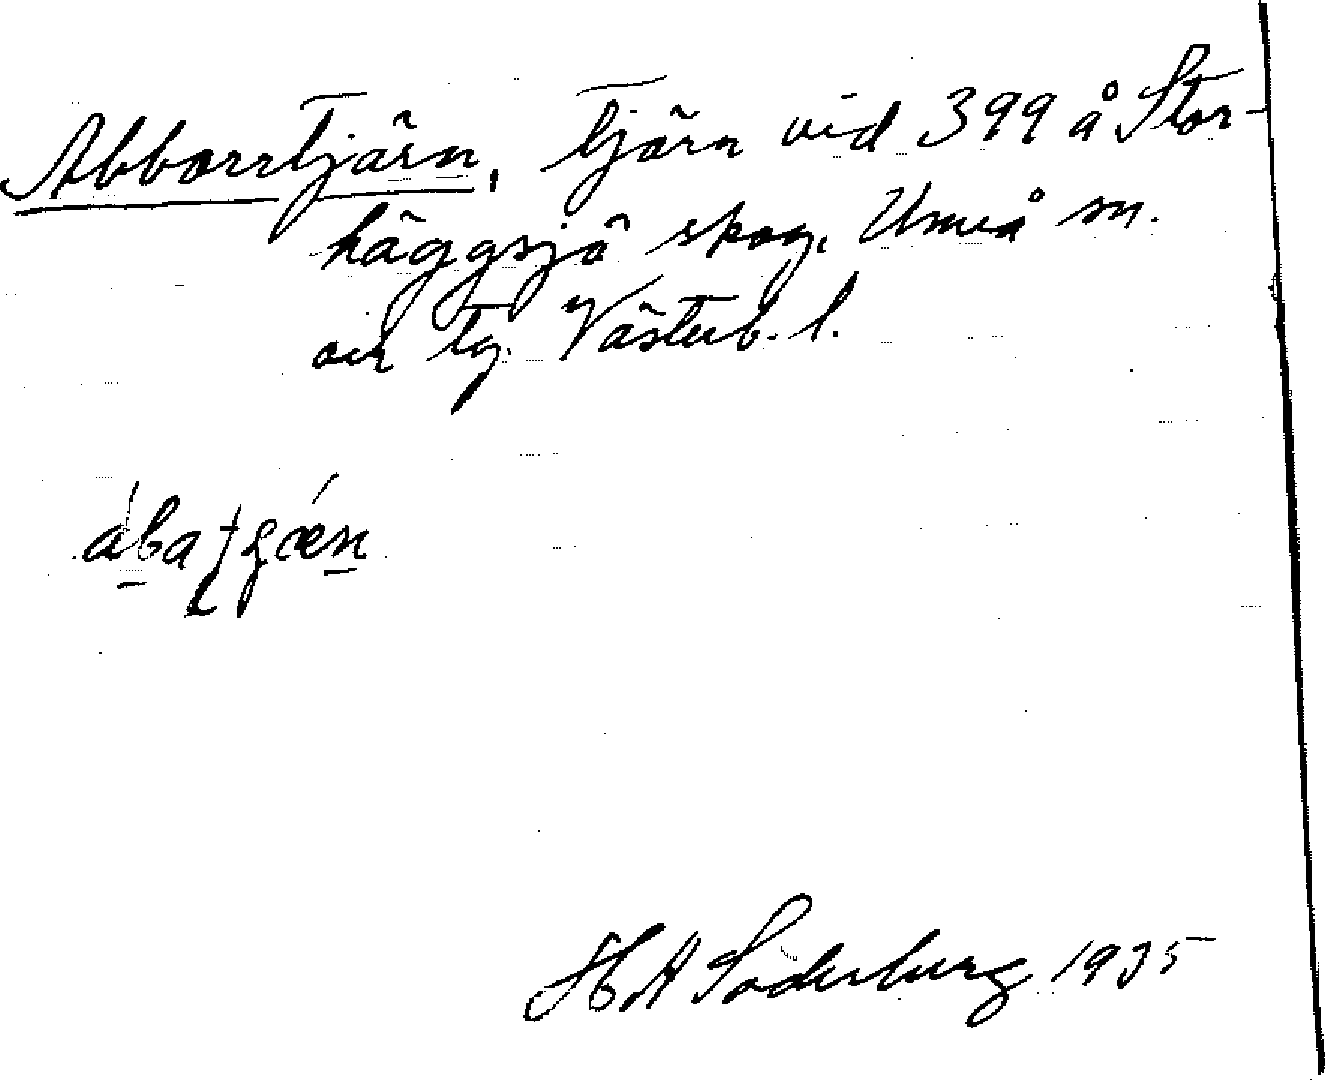 Abborrtjärn, tjärn vid 399 å Stor-
häggsjö skog, Umeå sn.
och tg. Västerb. l.
H A Söderberg 1935